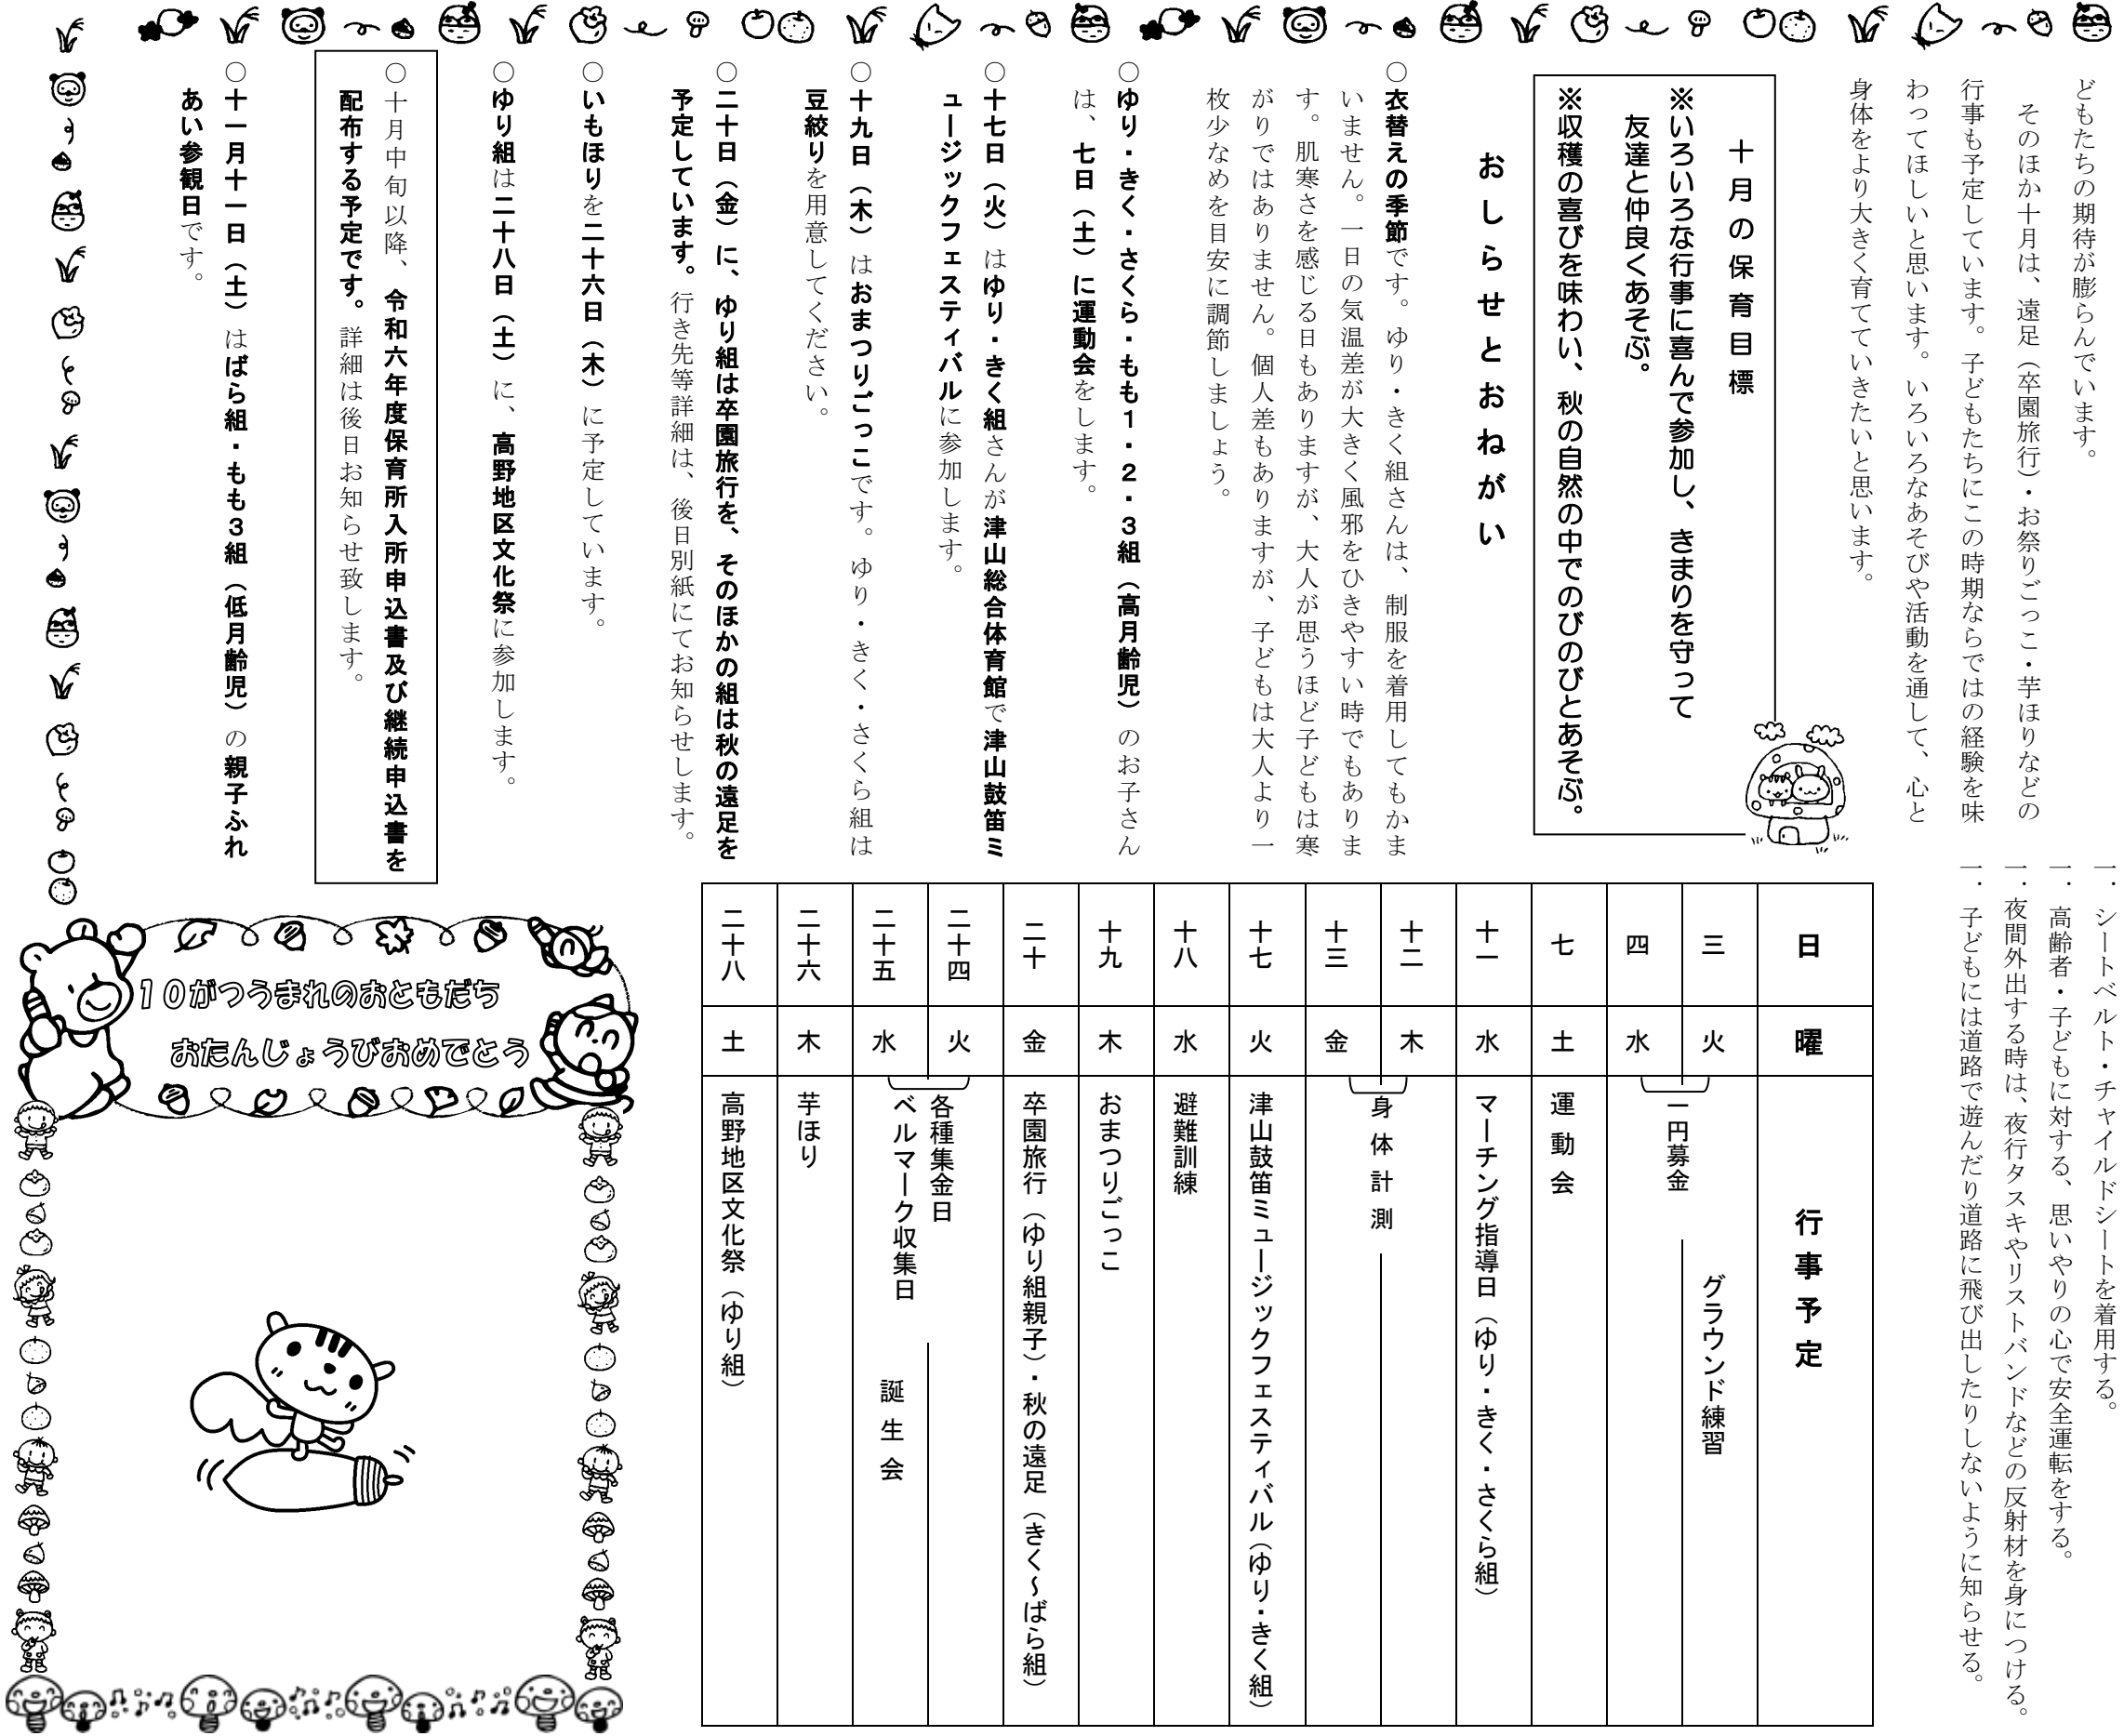 どもたちの期待が膨らんでいます。
そのほか十月は、遠足（卒園旅行）・お祭りごっこ・芋ほりなどの
行事も予定しています。子どもたちにこの時期ならではの経験を味
わってほしいと思います。いろいろなあそびや活動を通して、心と
身体をより大きく育てていきたいと思います。
十月の保育目標
※いろいろな行事に喜んで参加し、きまりを守って
友達と仲良くあそぶ。
※収穫の喜びを味わい、秋の自然の中でのびのびとあそぶ。
おしらせとおねがい
○衣替えの季節です。ゆり・きく組さんは、制服を着用してもかま
いません。一日の気温差が大きく風邪をひきやすい時でもありま
す。肌寒さを感じる日もありますが、大人が思うほど子どもは寒
がりではありません。個人差もありますが、子どもは大人より一
枚少なめを目安に調節しましょう。
○ゆり・きく・さくら・もも１・２・３組（高月齢児）のお子さん
は、七日（土）に運動会をします。
○十七日（火）はゆり・きく組さんが津山総合体育館で津山鼓笛ミ
ュージックフェスティバルに参加します。
○十九日（木）はおまつりごっこです。ゆり・きく・さくら組は
豆絞りを用意してください。
○二十日（金）に、ゆり組は卒園旅行を、そのほかの組は秋の遠足を
予定しています。行き先等詳細は、後日別紙にてお知らせします。
○いもほりを二十六日（木）に予定しています。
○ゆり組は二十八日（土）に、高野地区文化祭に参加します。
○十月中旬以降、令和六年度保育所入所申込書及び継続申込書を
配布する予定です。詳細は後日お知らせ致します。
○十一月十一日（土）はばら組・もも３組（低月齢児）の親子ふれ
あい参観日です。
一．シートベルト・チャイルドシートを着用する。
一．高齢者・子どもに対する、思いやりの心で安全運転をする。
一．夜間外出する時は、夜行タスキやリストバンドなどの反射材を身につける。
一．子どもには道路で遊んだり道路に飛び出したりしないように知らせる。
日 曜 行事予定
三 火 グラウンド練習
一円募金
四 水
七 土 運動会
十一 水 マーチング指導日（ゆり・きく・さくら組）
十二 木
身体計測
十三 金
十七 火 津山鼓笛ミュージックフェスティバル（ゆり・きく組）
十八 水 避難訓練
十九 木 おまつりごっこ
二十 金 卒園旅行（ゆり組親子）・秋の遠足（きく～ばら組）
二十四 火 各種集金日
二十五 水 ベルマーク収集日 誕生会
二十六 木 芋ほり
二十八 土 高野地区文化祭（ゆり組）
１０がつうまれのおともだち
おたんじょうびおめでとう